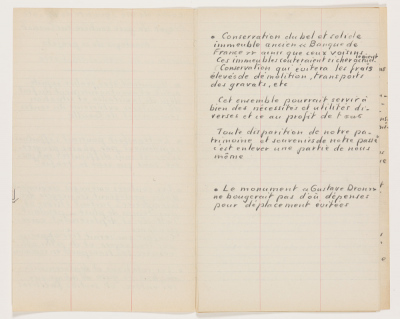 • Conservation du bel et solide
immeuble ancien a Banque de
France et ainsi que ceux voisins
Ces immeubles contiennent
Conservation qui évitera les frais
élevés de démolition, transports
des gravats, etc
Cet ensemble pourrait servir à
bien des nécessités et utilités di-
verses et ce au profit de tous
Toute disparition de notre pa-
trimoine et souvenirs de notre passé
c'est enlever une partie de nous
même
• Le monument a Gustave Dron
ne bougerait pas d'où dépenses
pour déplacement évitées